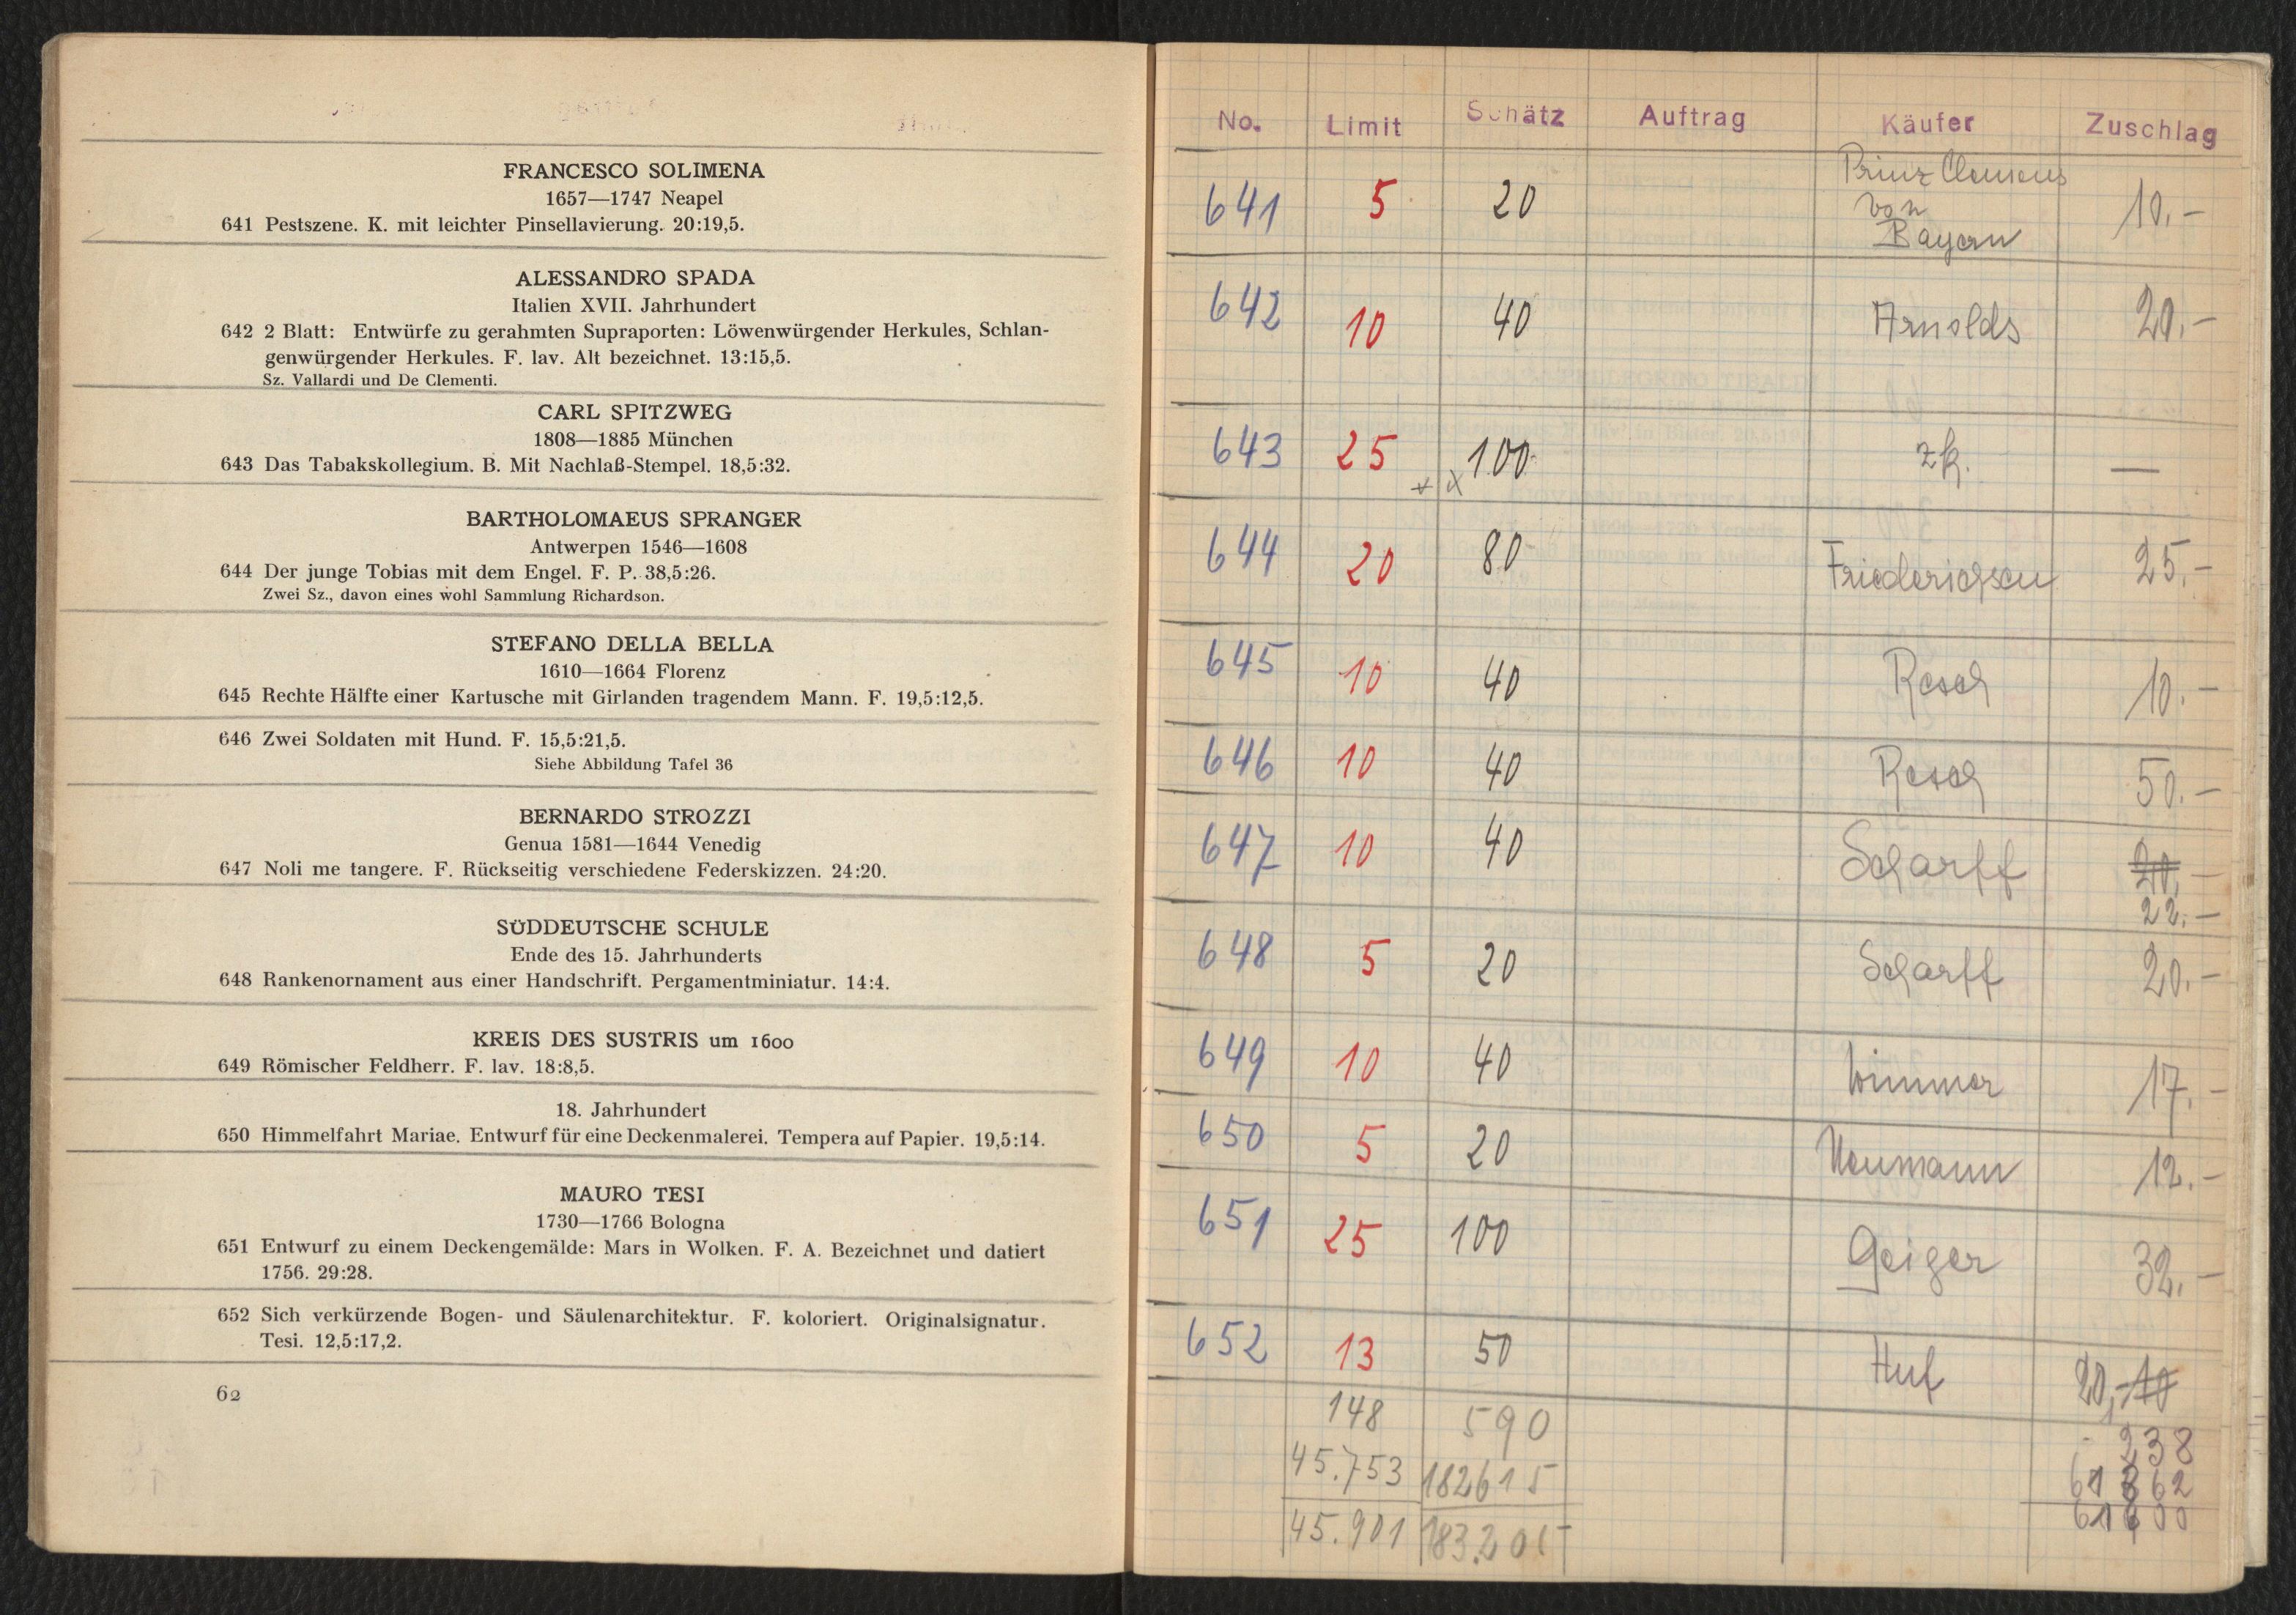 FRANCESCO SOLIMENA
1657—1747 Neapel
641 Pestszene. K. mit leichter Pinsellavierung. 20:19,5.
ALESSANDRO SPADA
Italien XVII. Jahrhundert
642 2 Blatt: Entwürfe zu gerahmten Supraporten: Löwenwürgender Herkules, Schlan-
genwürgender Herkules. F. lav. Alt bezeichnet. 13:15,5.
Sz. Vallardi und De Clementi.
CARL SPITZWEG
1808—1885 München
643 Das Tabakskollegium. B. Mit Nachlaß-Stempel. 18,5:32.
BARTHOLOMAEUS SPRANGER
Antwerpen 1546—1608
644 Der junge Tobias mit dem Engel. F. P. 38,5:26.
Zwei Sz., davon eines wohl Sammlung Richardson.
STEFANO DELLA BELLA
1610—1664 Florenz
645 Rechte Hälfte einer Kartusche mit Girlanden tragendem Mann. F. 19,5:12,5.
646 Zwei Soldaten mit Hund. F. 15,5:21,5.
Siehe Abbildung Tafel 36
BERNARDO STROZZI
Genua 1581—1644 Venedig
647 Noli me tangere. F. Rückseitig verschiedene Federskizzen. 24:20.
SÜDDEUTSCHE SCHULE
Ende des 15. Jahrhunderts
648 Rankenornament aus einer Handschrift. Pergamentminiatur. 14:4.
KREIS DES SUSTRIS um 1600
649 Römischer Feldherr. F. lav. 18:8,5.
18. Jahrhundert
650 Himmelfahrt Mariae. Entwurf für eine Deckenmalerei. Tempera auf Papier. 19,5:14.
MAURO TESI
1730—1766 Bologna
651 Entwurf zu einem Deckengemälde: Mars in Wolken. F. A. Bezeichnet und datiert
1756. 29:28.
652 Sich verkürzende Bogen- und Säulenarchitektur. F. koloriert. Originalsignatur.
Tesi. 12,5:17,2.
62
No. Limit Schätz Auftrag Käufer Zuschlag
641 5 20 Prinz Clemens von Bayern 10.-
642 10 40 Arnolds 20.-
643 25 100 zk. —
644 20 80 Friederichsen 25.-
645 10 40 Resch 10.-
646 10 40 Resch 50.-
647 10 40 Scharff 20.-
22.-
648 5 20 Scharff 20.-
649 10 40 Wimmer 17.-
650 5 20 Neumann 12.-
651 25 100 Geiger 32.-
652 13 50 Huf 20,- 10
148 590 238
45.753 182615
45.901 183.205